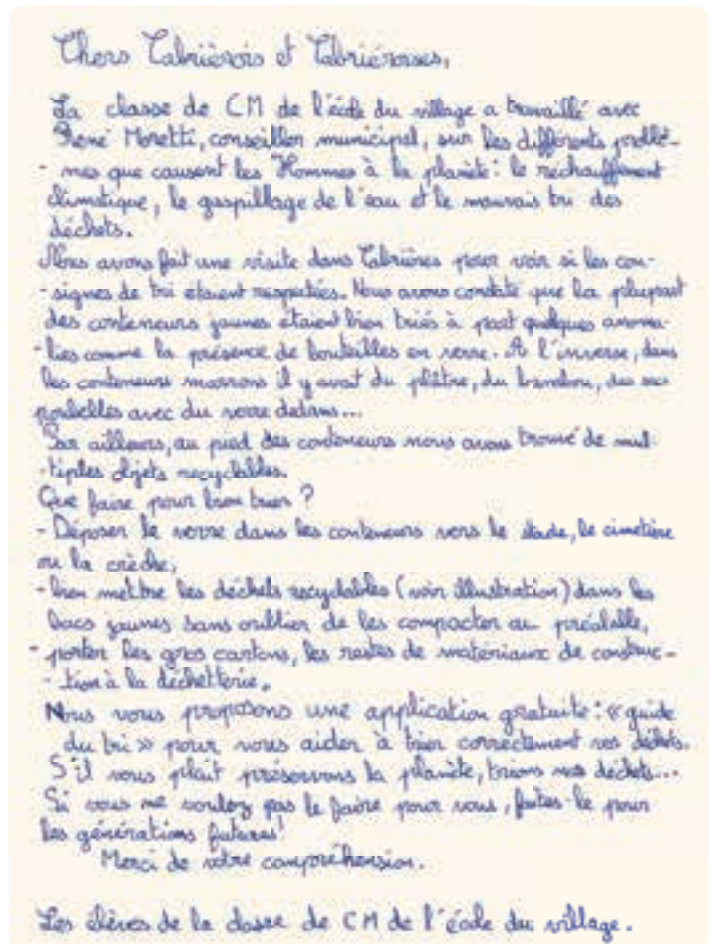 Chers Cabriérois et Cabriéroises,
La classe de CM de l'école du village a travaillé avec
René Moretti, conseiller municipal, sur les différents problè-
- mes que causent les Hommes à la planète : le réchauffement
climatique, le gaspillage de l'eau et le mauvais tri des
déchets.
Nous avons fait une visite dans Cabrières pour voir si les con-
- signes de tri étaient respectées. Nous avons constaté que la plupart
des conteneurs jaunes étaient bien triés à part quelques anoma-
- lies comme la présence de bouteilles en verre. A l'inverse, dans
les conteneurs marrons il y avait du plâtre, du bambou, des sacs
poubelles avec du verre dedans...
Par ailleurs, au pied des conteneurs nous avons trouvé de mul-
- tiples objets recyclables.
Que faire pour bien trier ?
- Déposer le verre dans les conteneurs vers le stade, le cimetière
ou la crèche,
- bien mettre les déchets recyclables (voir illustration) dans les
bacs jaunes sans oublier de les compacter au préalable,
- porter les gros cartons, les restes de matériaux de construc-
- tion à la déchetterie.
Nous vous proposons une application gratuite : « guide
du tri » pour vous aider à trier correctement vos déchets.
S'il vous plait préservons la planète, trions nos déchets...
Si vous ne voulez pas le faire pour vous, faites-le pour
les générations futures !
Merci de votre compréhension.
Les élèves de la classe de CM de l'école du village.